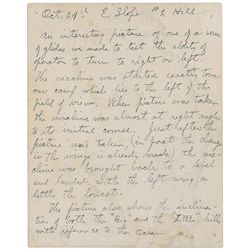 Oct. 24th E. Slope #2 Hill
An interesting picture of one of a series
of glides we made to test the ability of
operator to turn to right or left.
The machine was started exactly toward
our camp which lies to the left of the
field of view. When picture was taken
the machine was almost at right angles
to its initial course. Just after the
picture was taken, (in fact the change
in the wings is already made) the ma-
chine was brought back to a level
and landed with the left wing a
little the lowest.
The picture also shows the inclina-
tion of both the "Big" and the "Little" hills
with reference to the Ocean.